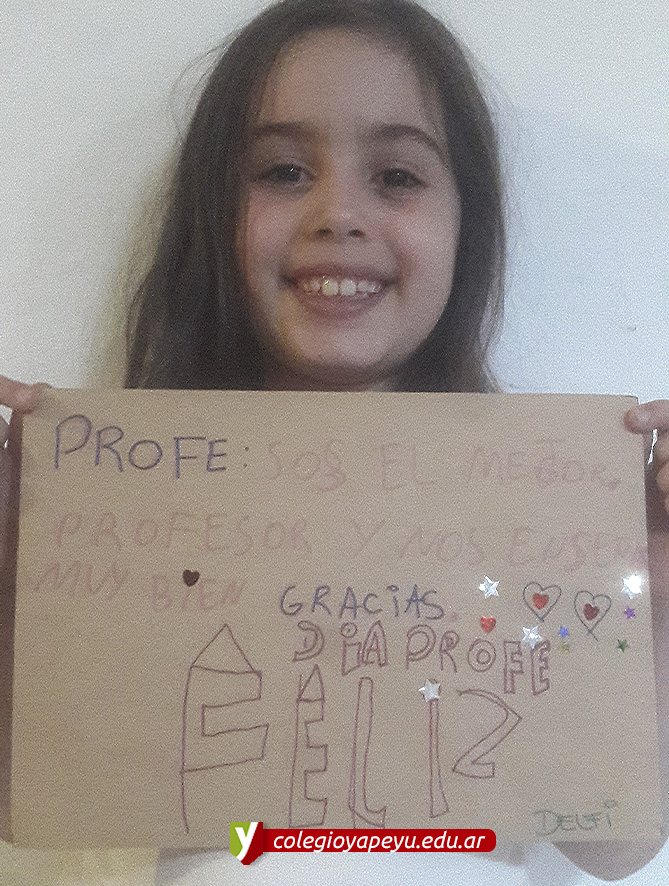 PROFE: SOS EL MEJOR.
PROFESOR Y NOS ENSEÑA
MUY BIEN GRACIAS.
DiA PROFE
FELIZ
DELFi
y colegioyapeyu.edu.ar